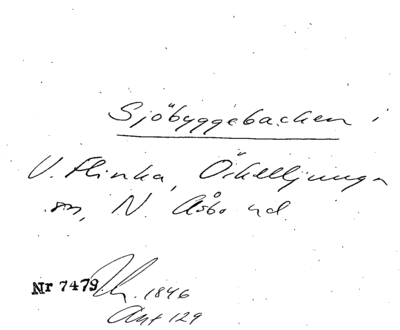 Sjöbyggebacken i
V. Flinka, Örkelljunga
sn, N. Åsbo hd
Nr 7479
1846
Ant 129